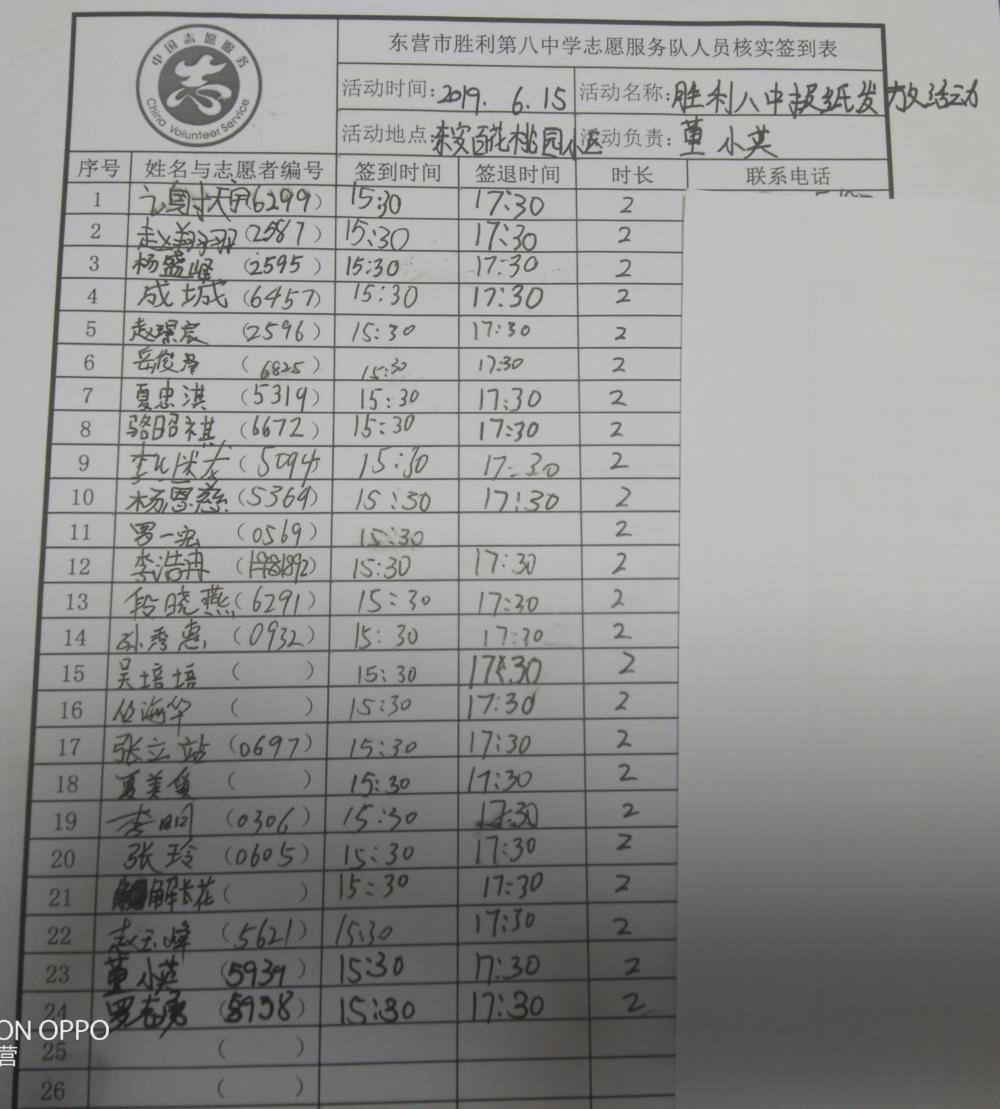 中国志愿服务
China Volunteer Service
东营市胜利第八中学志愿服务队人员核实签到表
活动时间:2019.6.15 活动名称:胜利八中报纸发放活动
活动地点 桃园小区 活动负责:董小英
序号 姓名与志愿者编号 签到时间 签退时间 时长 联系电话
1 (6299) 15:30 17:30 2
2 赵翔羽(2587) 15:30 17:30 2
3 杨盛峰(2595) 15:30 17:30 2
4 成城(6457) 15:30 17:30 2
5 赵璟宸(2596) 15:30 17:30 2
6 岳俊(6825) 15:30 17:30 2
7 夏忠淇(5319) 15:30 17:30 2
8 骆昭祺(6672) 15:30 17:30 2
9 (5094) 15:30 17:30 2
10 杨恩慈(5369) 15:30 17:30 2
11 罗一宏(0569) 15:30 2
12 李浩冉 15:30 17:30 2
13 段晓燕(6291) 15:30 17:30 2
14 孙秀惠(0932) 15:30 17:30 2
15 吴培培( ) 15:30 17:30 2
16 任海华( ) 15:30 17:30 2
17 张立站(0697) 15:30 17:30 2
18 夏美隻( ) 15:30 17:30 2
19 李明(0306) 15:30 17:30 2
20 张玲(0605) 15:30 17:30 2
21 解长花( ) 15:30 17:30 2
22 赵玉峰(5621) 15:30 17:30 2
23 董小英(5939) 15:30 17:30 2
24 罗春勇(5938) 15:30 17:30 2
25 ( )
26 ( )
ON OPPO
营